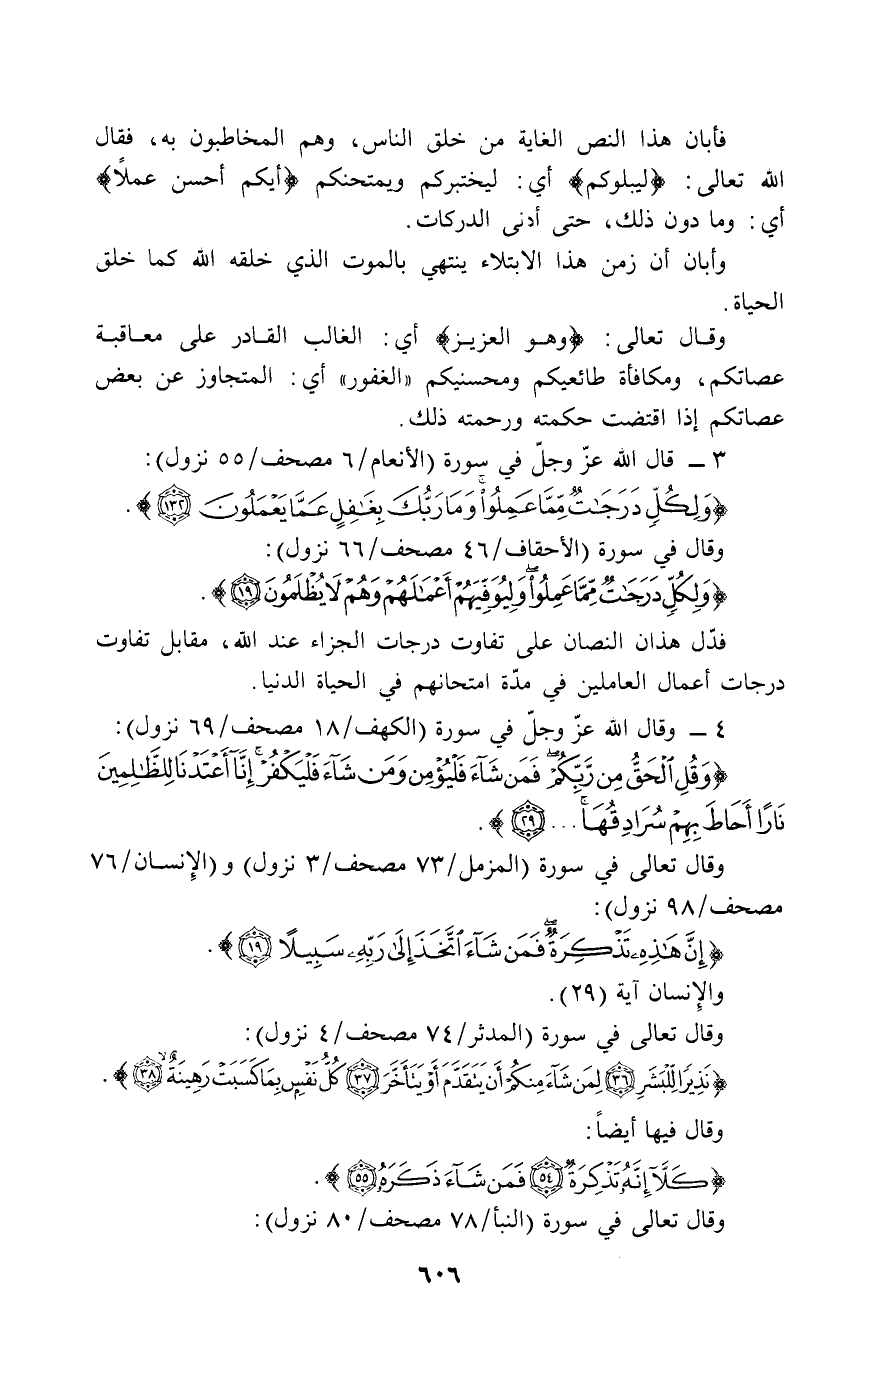 فأبان هذا النص الغاية من خلق الناس، وهم المخاطبون به، فقال
الله تعالى: ﴿ليبلوكم﴾ أي: ليختبركم ويمتحنكم ﴿أيكم أحسن عملاً﴾
أي: وما دون ذلك، حتى أدنى الدركات.
وأبان أن زمن هذا الابتلاء ينتهي بالموت الذي خلقه الله كما خلق
الحياة.
وقال تعالى: ﴿وهو العزيز﴾ أي: الغالب القادر على معاقبة
عصاتكم، ومكافأة طائعيكم ومحسنيكم «الغفور» أي: المتجاوز عن بعض
عصاتكم إذا اقتضت حكمته ورحمته ذلك.
٣ ـ قال الله عزّ وجلّ في سورة (الأنعام/٦ مصحف/٥٥ نزول):
﴿وَلِكُلٍّ دَرَجَٰتٌ مِّمَّا عَمِلُواْۚ وَمَا رَبُّكَ بِغَٰفِلٍ عَمَّا يَعْمَلُونَ ۝١٣٢﴾.
وقال في سورة (الأحقاف/٤٦ مصحف/٦٦ نزول):
﴿وَلِكُلٍّ دَرَجَٰتٌ مِّمَّا عَمِلُواْۖ وَلِيُوَفِّيَهُمْ أَعْمَٰلَهُمْ وَهُمْ لَا يُظْلَمُونَ ۝١٩﴾.
فدّل هذان النصان على تفاوت درجات الجزاء عند الله، مقابل تفاوت
درجات أعمال العاملين في مدّة امتحانهم في الحياة الدنيا.
٤ ـ وقال الله عزّ وجلّ في سورة (الكهف/١٨ مصحف/٦٩ نزول):
﴿وَقُلِ ٱلْحَقُّ مِن رَّبِّكُمْۖ فَمَن شَآءَ فَلْيُؤْمِن وَمَن شَآءَ فَلْيَكْفُرْۚ إِنَّآ أَعْتَدْنَا لِلظَّٰلِمِينَ
نَارًا أَحَاطَ بِهِمْ سُرَادِقُهَاۚ ... ۝٢٩﴾.
وقال تعالى في سورة (المزمل/٧٣ مصحف/٣ نزول) و (الإنسان/٧٦
مصحف/٩٨ نزول):
﴿إِنَّ هَٰذِهِۦ تَذْكِرَةٌۖ فَمَن شَآءَ ٱتَّخَذَ إِلَىٰ رَبِّهِۦ سَبِيلًا ۝١٩﴾.
والإنسان آية (٢٩).
وقال تعالى في سورة (المدثر/٧٤ مصحف/٤ نزول):
﴿نَذِيرًا لِّلْبَشَرِ ۝٣٦ لِمَن شَآءَ مِنكُمْ أَن يَتَقَدَّمَ أَوْ يَتَأَخَّرَ ۝٣٧ كُلُّ نَفْسٍۭ بِمَا كَسَبَتْ رَهِينَةٌ ۝٣٨﴾.
وقال فيها أيضاً:
﴿كَلَّآ إِنَّهُۥ تَذْكِرَةٌ ۝٥٤ فَمَن شَآءَ ذَكَرَهُۥ ۝٥٥﴾.
وقال تعالى في سورة (النبأ/٧٨ مصحف/٨٠ نزول):
٦٠٦